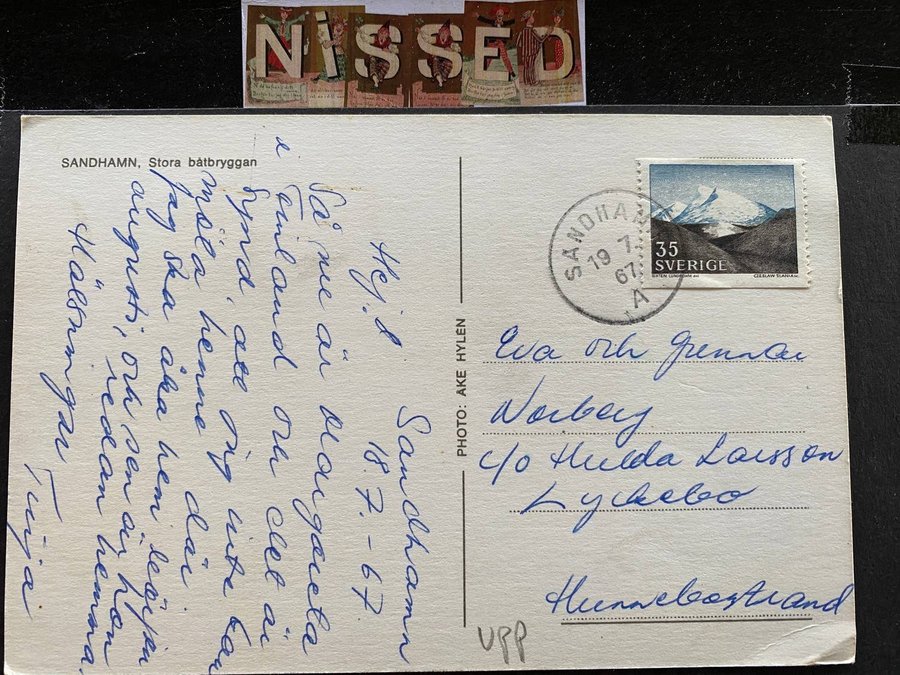 NISSED
SANDHAMN, Stora båtbryggan
Sandhamn
18.7.-67
Hej!
Så nu är Margareta
i Finland och det är
synd att jag inte kan
möta henne där.
Jag ska åka hem i början
augusti, och sen är hon
redan hemma.
Hälsningar
Tuija
PHOTO: ÅKE HYLÉN
SANDHAMN
19 7.
67
A
35
SVERIGE
CZESLAW SLANIA SC
Eva och Gunnar
Norberg
c/o Hulda Larsson
Lyckebo
Hunnebostrand
UPP